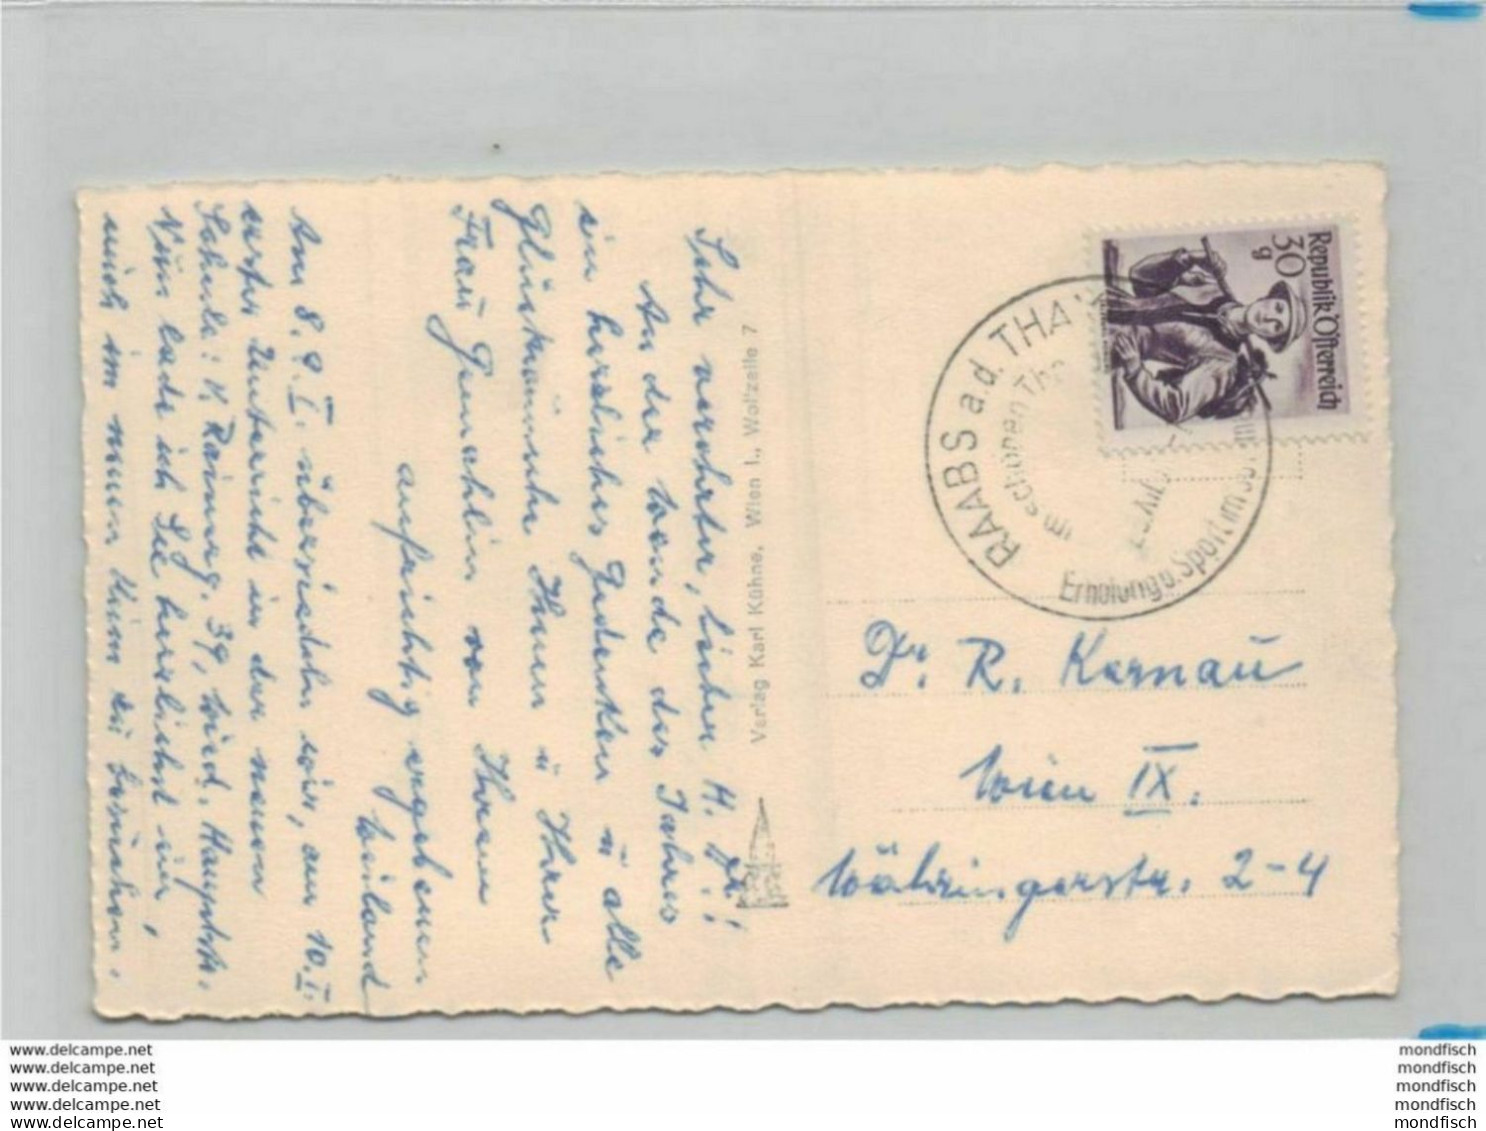 Sehr verehrter, lieber H. Dr.!
An der Wende des Jahres
ein herzliches Gedenken u alle
Glückwünsche Ihnen u Ihrer
Frau Gemahlin von Ihrem
aufrichtig ergebenen
Weiland
Am 8. 9. I. übersiedeln wir, am 10. I.
erster Unterricht in der neuen
Schule: V, Rainerg. 39, Wied. Hauptstr.
Nun lade ich Sie herzlichst ein,
mich im neuen Heim zu besuchen.
Verlag Karl Kühne, Wien I., Wollzeile 7
Republik Österreich
30 g
RAABS a.d. THAY
im schönen Tha
Erholung u. Sport im
Dr. R. Kernau
Wien IX.
Währingerstr. 2-4
www.delcampe.net
www.delcampe.net
www.delcampe.net
www.delcampe.net
www.delcampe.net
mondfisch
mondfisch
mondfisch
mondfisch
mondfisch